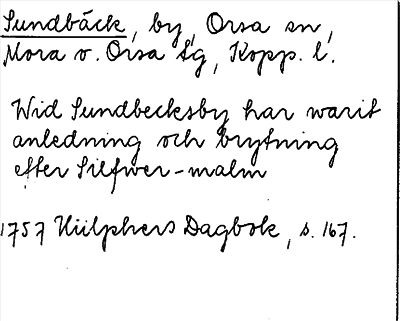 Sundbäck, by, Orsa sn,
Mora o. Orsa tg, Kopp. l.
Wid Sundbecksby har warit
anledning och brytning
efter Silfwer-malm
1757 Hülphers Dagbok, s. 167.